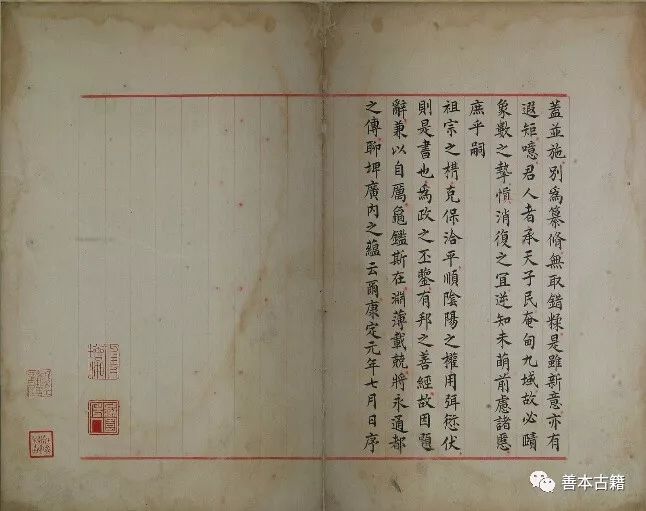 蓋並施別為纂脩無取錯糅是雖新意亦有
遐矩噫君人者承天子民奄甸九域故必賾
象數之摯慎消復之宜逆知未萌前慮諸慝
庶乎嗣
祖宗之構克保洽平順陰陽之權用弭愆伏
則是書也為政之丕鑒有邦之善經故因題
辭兼以自厲龜鑑斯在淵薄載兢將永通都
之傳聊埤廣內之蘊云爾康定元年七月日序
善本古籍